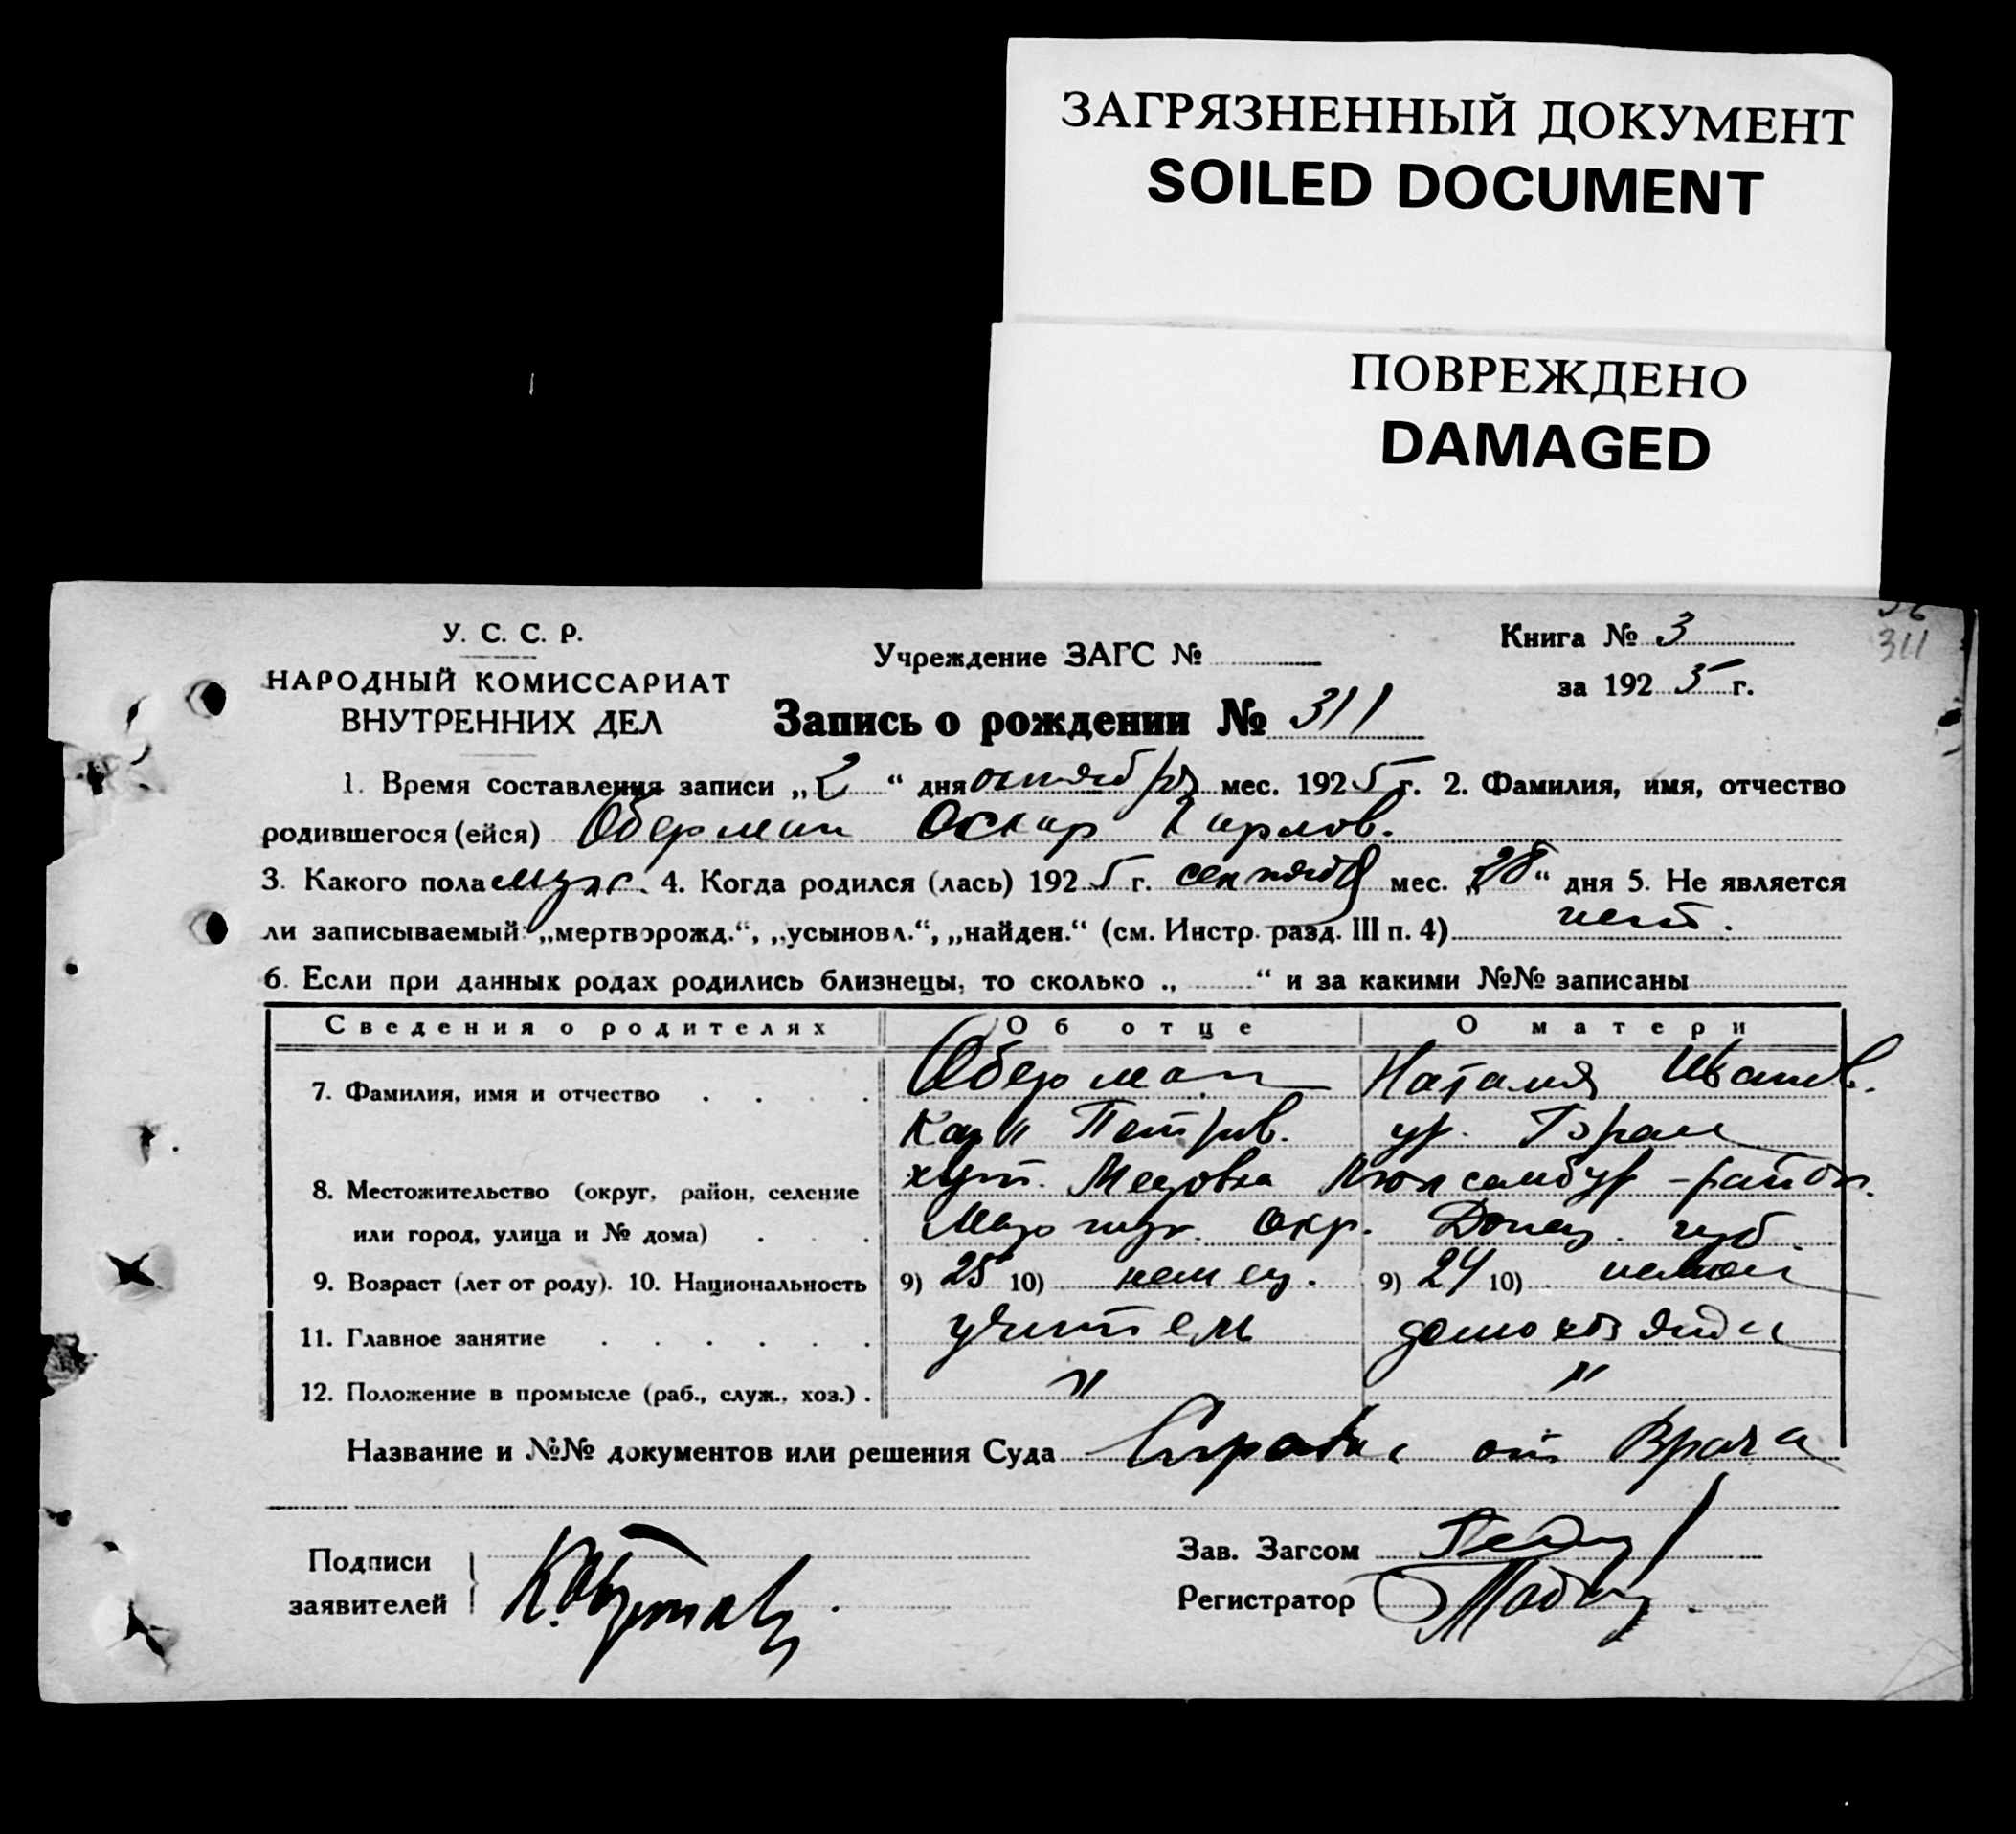 ЗАГРЯЗНЕННЫЙ ДОКУМЕНТ
SOILED DOCUMENT
ПОВРЕЖДЕНО
DAMAGED
311
У. С. С. Р.
НАРОДНЫЙ КОМИССАРИАТ
ВНУТРЕННИХ ДЕЛ
Учреждение ЗАГС №
Книга № 3
за 1925 г.
Запись о рождении № 311
1. Время составления записи „2“ дня октября мес. 1925 г. 2. Фамилия, имя, отчество
родившегося (ейся) Оберман Оскар Карлов.
3. Какого пола муж. 4. Когда родился (лась) 1925 г. сентября мес. „28“ дня 5. Не является
ли записываемый: „мертворожд.“, „усыновл.“, „найден.“ (см. Инстр. разд. III п. 4) нет.
6. Если при данных родах родились близнецы, то сколько „ “ и за какими №№ записаны
Сведения о родителях Об отце О матери
7. Фамилия, имя и отчество Оберман Наталия Иванов.
Карл Петров. ур.
8. Местожительство (округ, район, селение хут. Люксембур - район.
или город, улица и № дома) Мариуп. окр. Донец. губ.
9. Возраст (лет от роду). 10. Национальность 9) 25 10) немец. 9) 24 10) немка
11. Главное занятие учитель домохозяйка
12. Положение в промысле (раб., служ., хоз.) . " "
Название и №№ документов или решения Суда Справка от Врача
Подписи
заявителей
Зав. Загсом
Регистратор